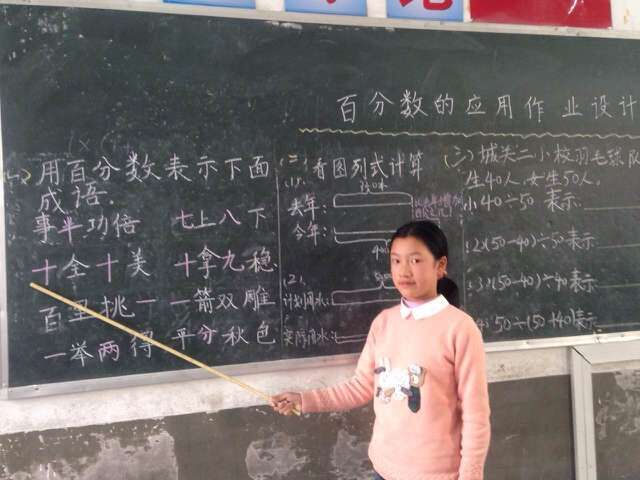 百分数的应用作业设计
(一)用百分数表示下面
成语.
事半功倍 七上八下
十全十美 十拿九稳
百里挑一 一箭双雕
一举两得 平分秋色
(二)看图列式计算
(1).
去年:
今年:
(2).
计划用水:
实际用水:
(三)城关二小校羽毛球队
生40人,女生50人.
40÷50 表示
(2)(50-40)÷50表示
(3)(50-40)÷40表示
(4)50÷(50+40)表示